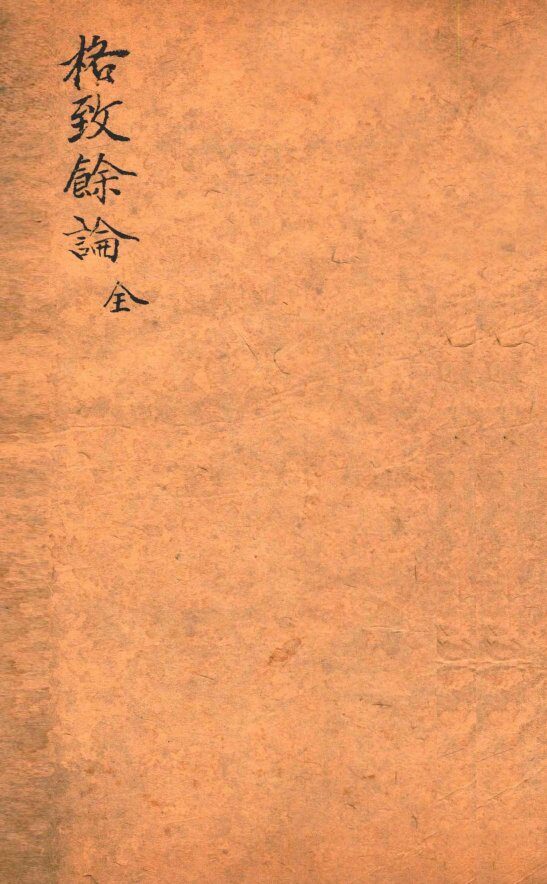 格致餘論
全